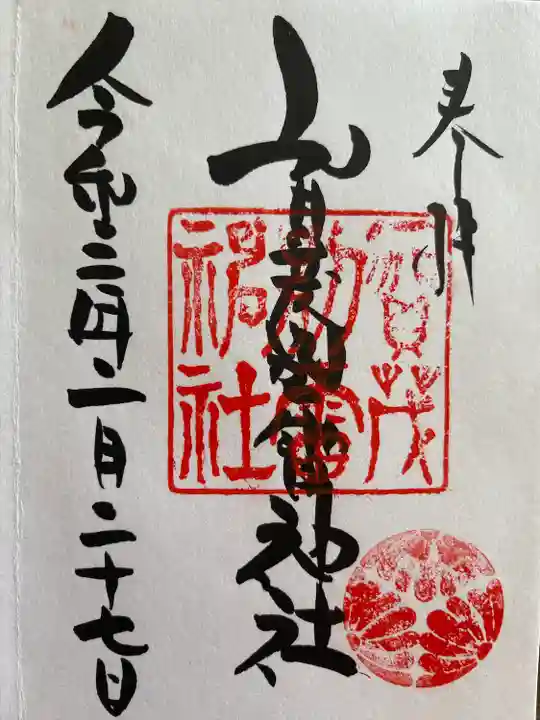 奉拝
賀茂別雷神社
令和二年一月二十七日
賀茂
別雷
神社